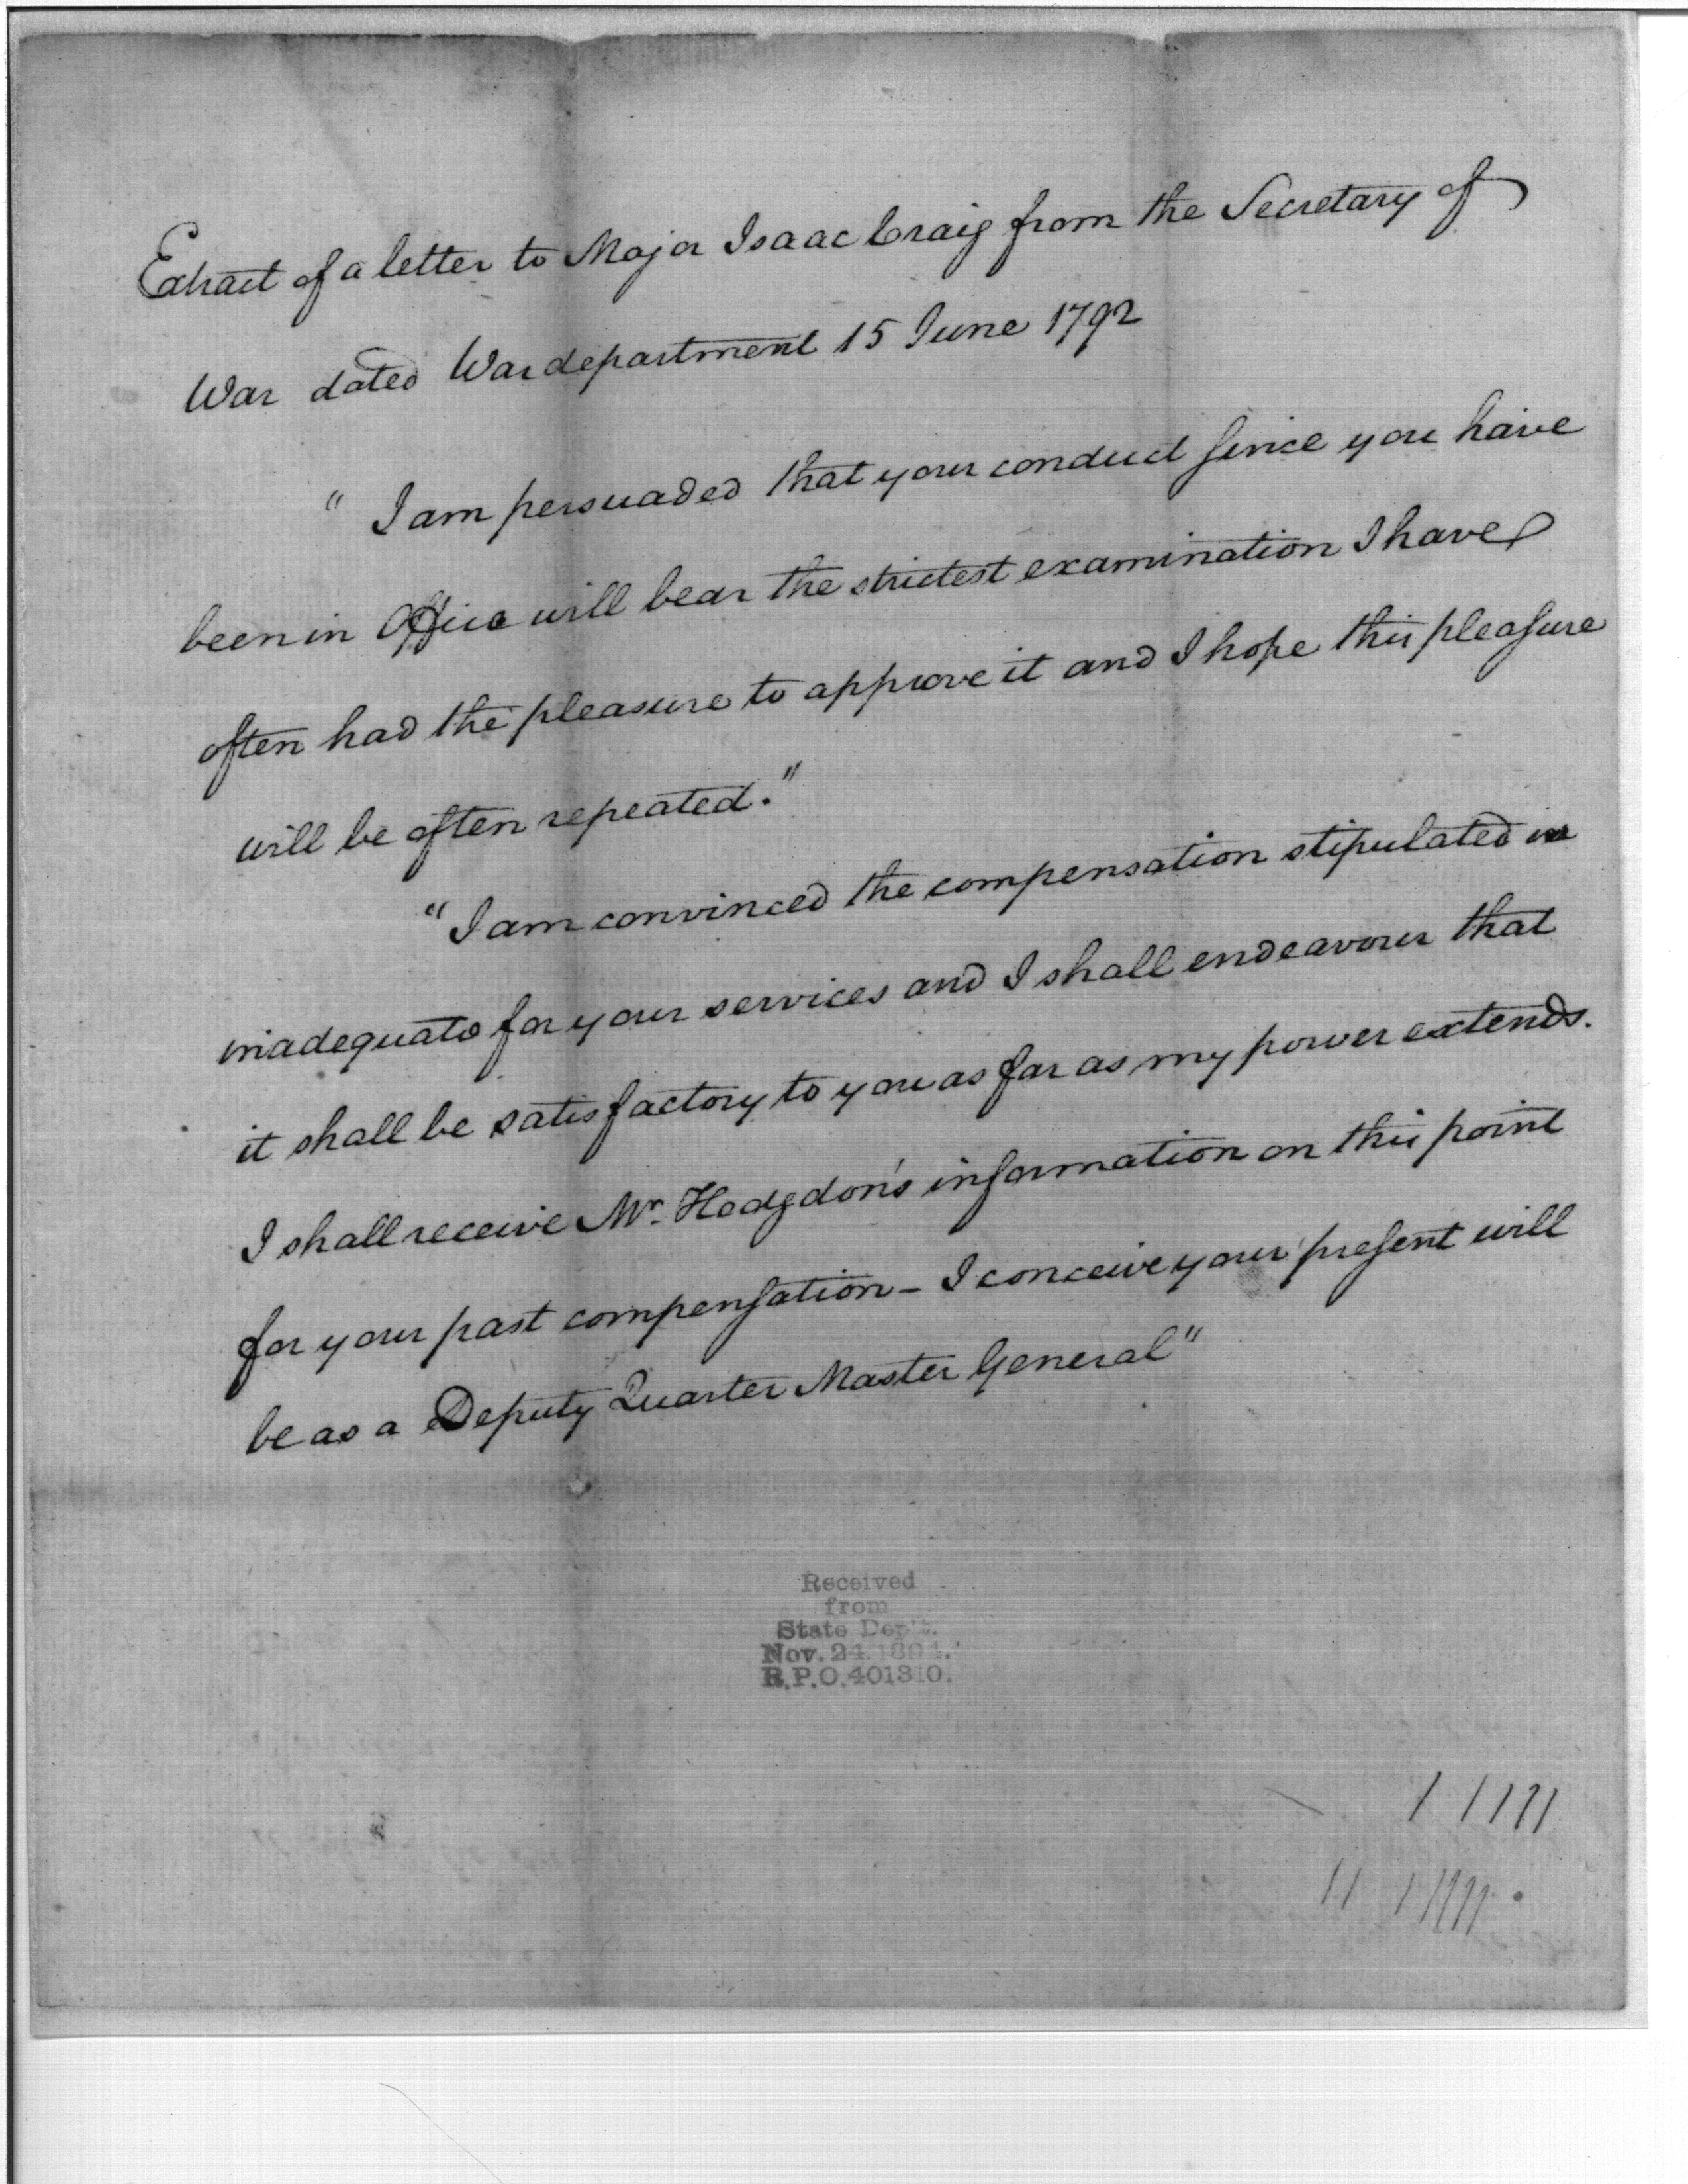 Extract of a letter to Major Isaac Craig from the Secretary of
War dated War department 15 June 1792
"I am persuaded that your conduct since you have
been in Office will bear the strictest examination I have
often had the pleasure to approve it and I hope this pleasure
will be often repeated."
"I am convinced the compensation stipulated is
inadequate for your services and I shall endeavour that
it shall be satisfactory to you as far as my power extends.
I shall receive Mr. Hodgdon's information on this point
for your past compensation – I conceive your present will
be as a Deputy Quarter Master General"
Received
from
State Dep't.
Nov. 24. 1894.
R.P.O. 401310.